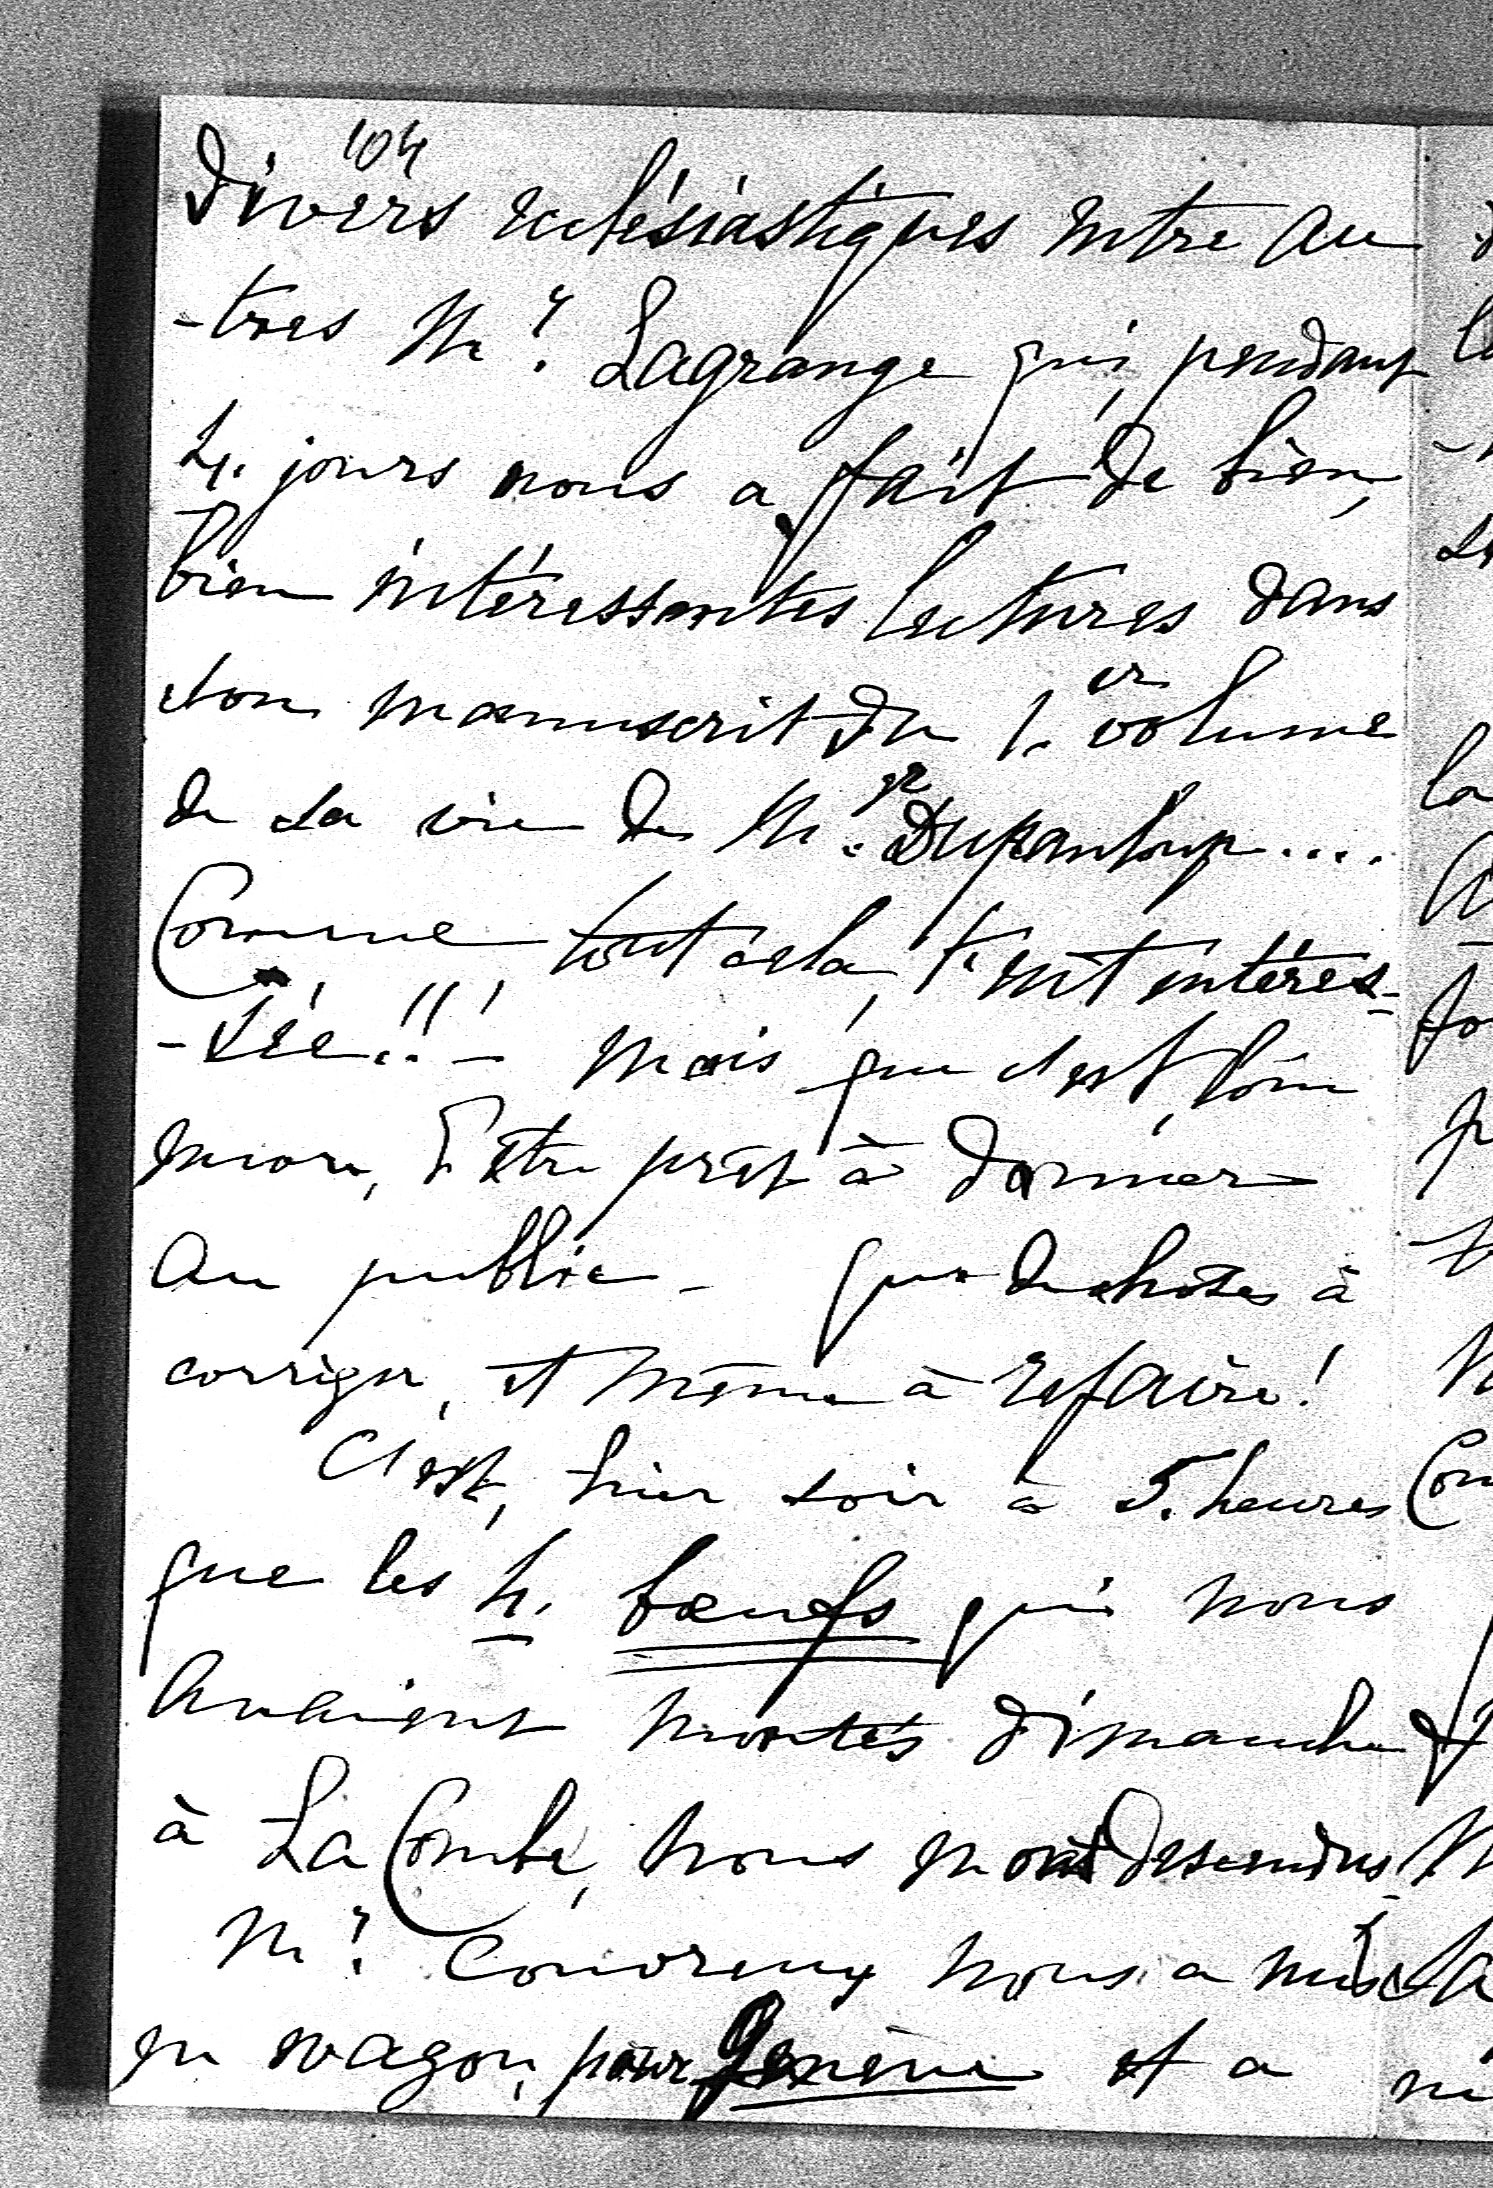 104
divers ecclésiastiques entre au
-tres Mr. Lagrange qui, pendant
4. jours nous a fait de bien,
bien intéressantes lectures dans
son manuscrit du 1.er volume
de la vie de Mgr. Dupanloup....
Comme tout cela, t'eut intéres-
-sée!!! - Mais que c'est, loin
encore, d'être prêt à donner
au public - que de choses à
corriger, et même à refaire!
C'est, hier soir à 5. heures
que les 4. bœufs qui nous
avaient montés dimanche
à La Combe, nous en ont descendus
Mr. Couvreux nous a mis
en wagon, pour Genève et a